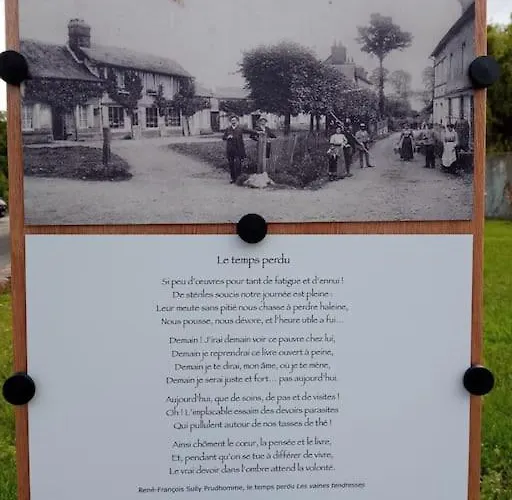 Le temps perdu
Si peu d'œuvres pour tant de fatigue et d'ennui !
De stériles soucis notre journée est pleine :
Leur meute sans pitié nous chasse à perdre haleine,
Nous pousse, nous dévore, et l'heure utile a fui...
Demain ! J'irai demain voir ce pauvre chez lui,
Demain je reprendrai ce livre ouvert à peine,
Demain je te dirai, mon âme, où je te mène,
Demain je serai juste et fort... pas aujourd'hui.
Aujourd'hui, que de soins, de pas et de visites !
Oh ! L'implacable essaim des devoirs parasites
Qui pullulent autour de nos tasses de thé !
Ainsi chôment le cœur, la pensée et le livre,
Et, pendant qu'on se tue à différer de vivre,
Le vrai devoir dans l'ombre attend la volonté.
René-François Sully Prudhomme, le temps perdu Les vaines tendresses